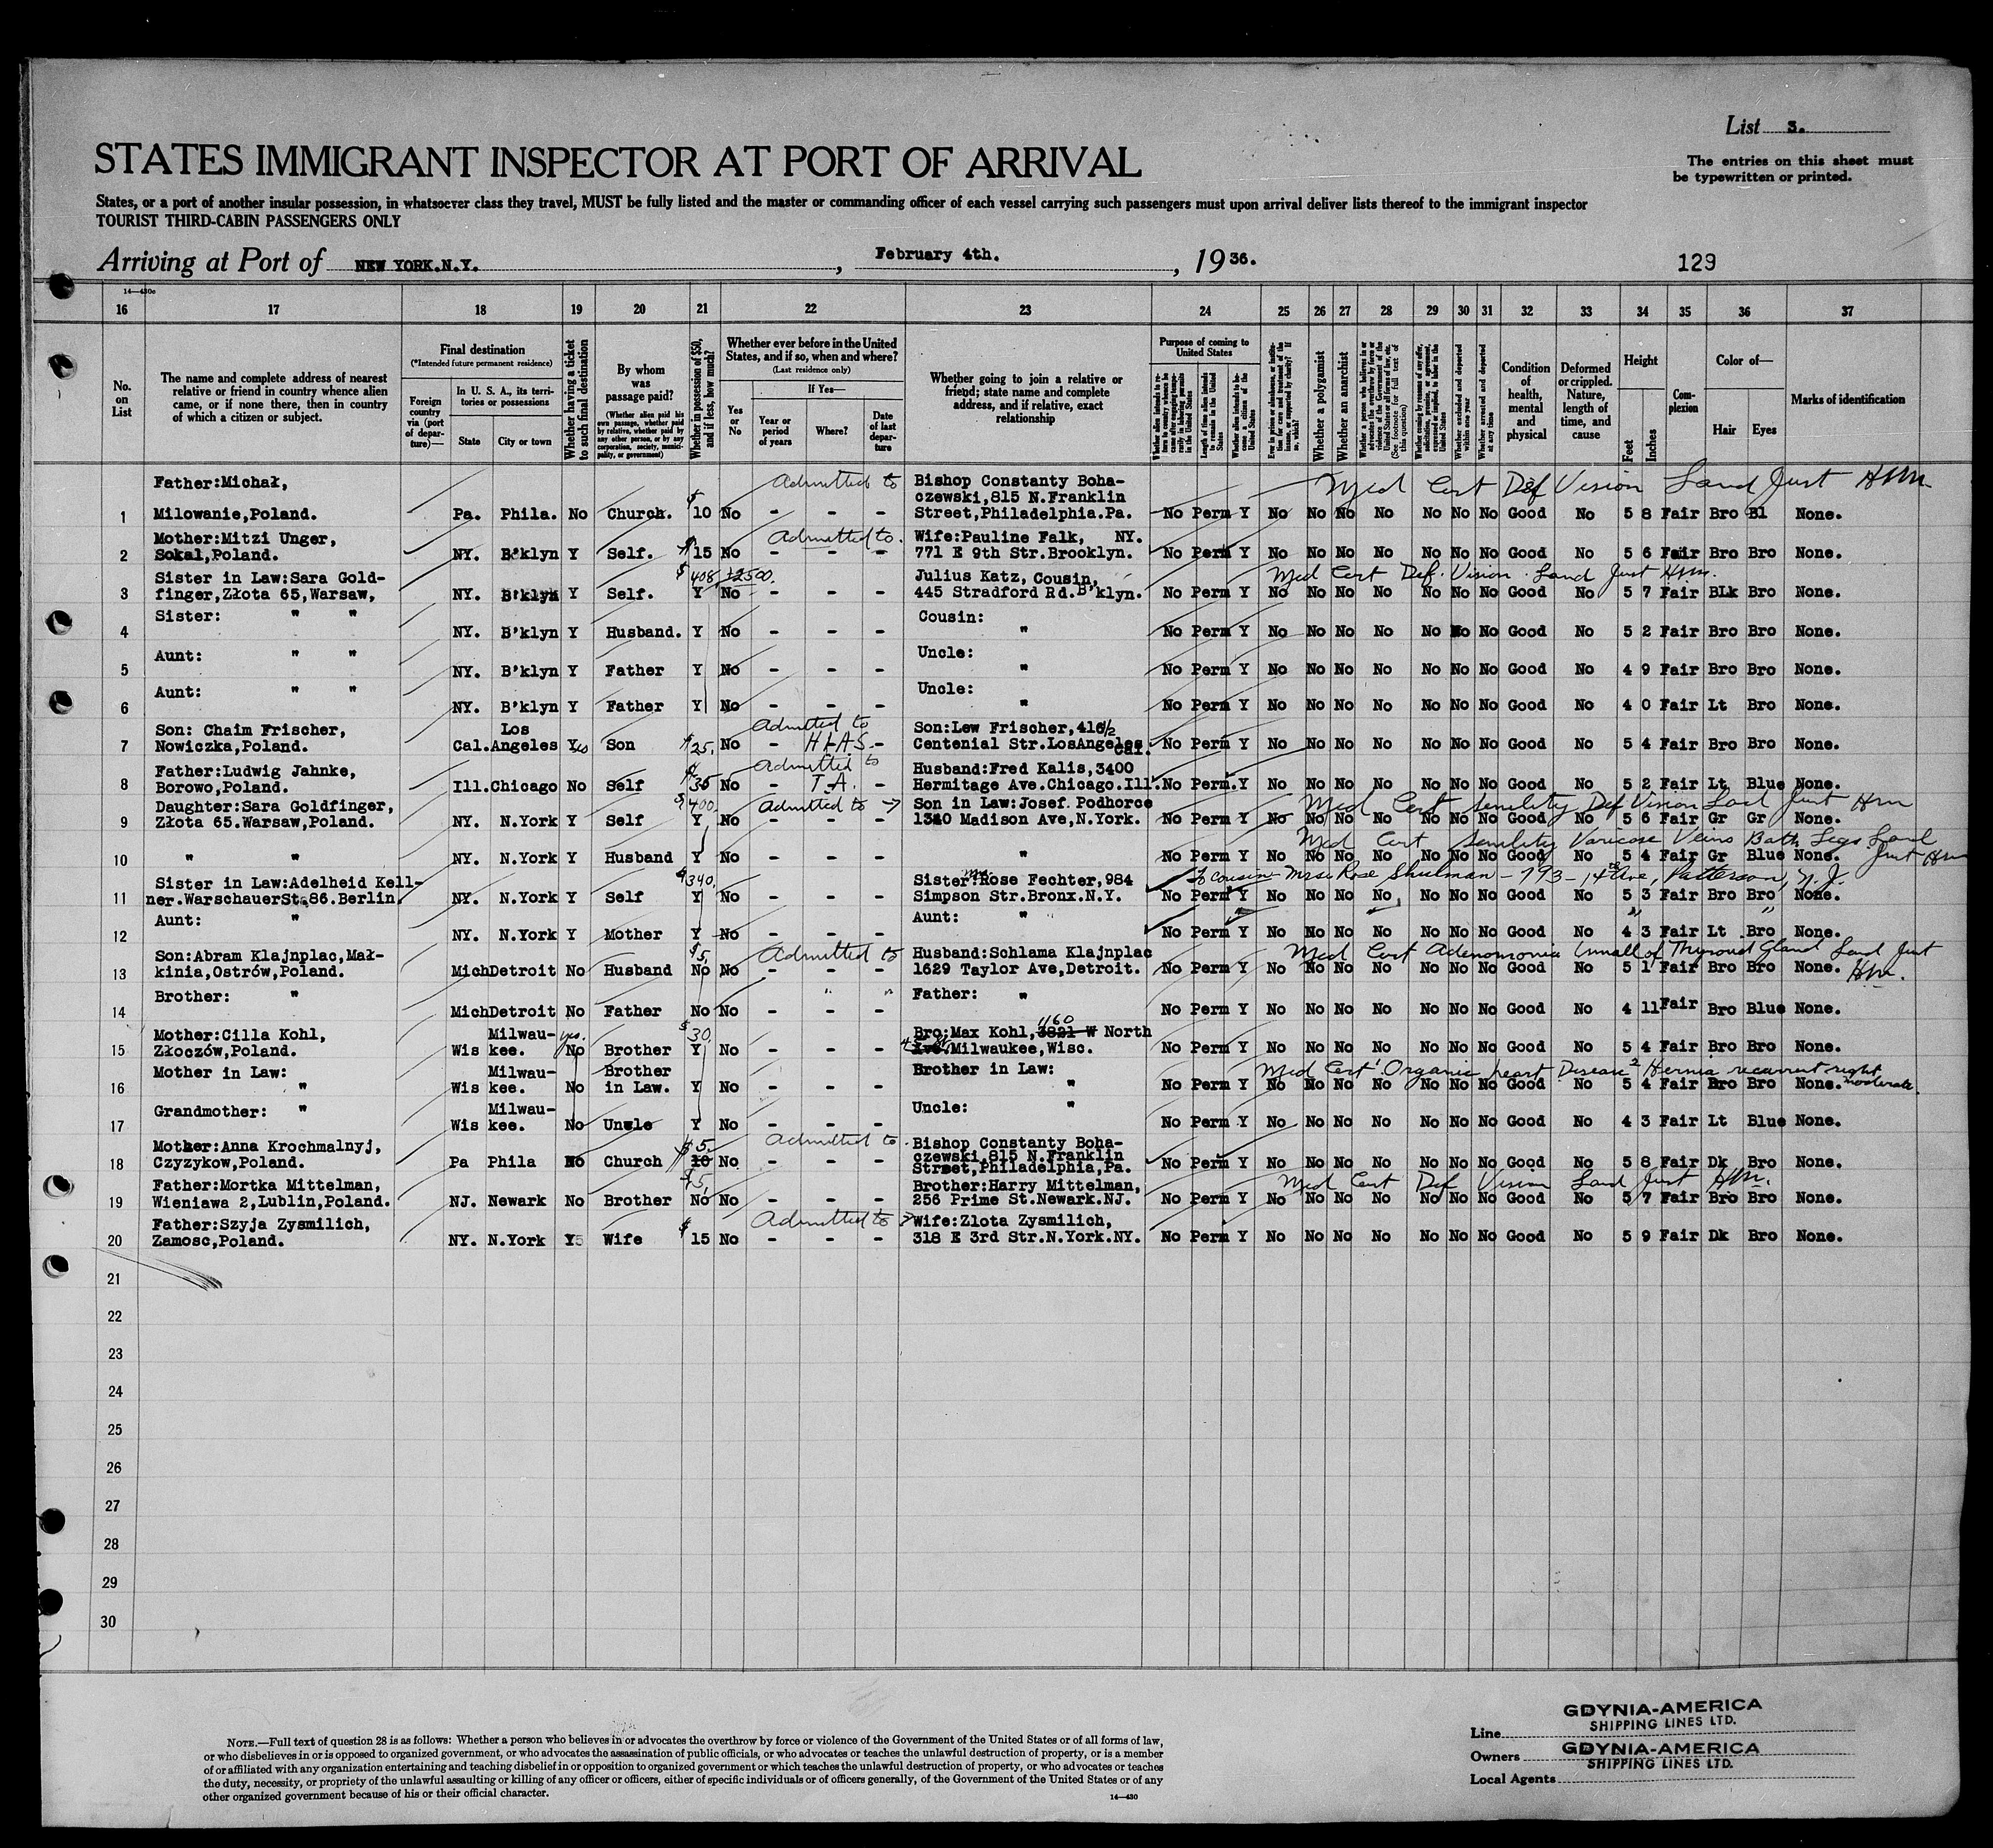 List 3.
STATES IMMIGRANT INSPECTOR AT PORT OF ARRIVAL
The entries on this sheet must
be typewritten or printed.
States, or a port of another insular possession, in whatsoever class they travel, MUST be fully listed and the master or commanding officer of each vessel carrying such passengers must upon arrival deliver lists thereof to the immigrant inspector
TOURIST THIRD-CABIN PASSENGERS ONLY
Arriving at Port of NEW YORK.N.Y. , February 4th. , 1936.
129
14—430c
16 17 18 19 20 21 22 23 24 25 26 27 28 29 30 31 32 33 34 35 36 37
No. on List
The name and complete address of nearest relative or friend in country whence alien came, or if none there, then in country of which a citizen or subject.
Final destination
(*Intended future permanent residence)
Foreign country via (port of departure)—
In U. S. A., its territories or possessions
State City or town
Whether having a ticket to such final destination
By whom was passage paid?
(Whether alien paid his own passage, whether paid by relative, whether paid by any other person, or by any corporation, society, municipality, or government)
Whether in possession of $50, and if less, how much?
Whether ever before in the United States, and if so, when and where?
(Last residence only)
Yes or No
If Yes—
Year or period of years
Where?
Date of last departure
Whether going to join a relative or friend; state name and complete address, and if relative, exact relationship
Purpose of coming to United States
Length of time alien intends to remain in the United States
Whether alien intends to become a citizen of the United States
Whether a polygamist
Whether an anarchist
Whether excluded and deported within one year
Whether arrested and deported at any time
Condition of health, mental and physical
Deformed or crippled. Nature, length of time, and cause
Height
Feet Inches
Complexion
Color of—
Hair Eyes
Marks of identification
Father:Michał, Admitted to Bishop Constanty Boha- Med Cert Def Vision Land Just HMM
czewski,815 N.Franklin
1 Milowanie,Poland. Pa. Phila. No Church. $10 No - - - Street,Philadelphia.Pa. No Perm Y No No No No No No No Good No 5 8 Fair Bro Bl None.
Mother:Mitzi Unger, Admitted to. Wife:Pauline Falk, NY.
2 Sokal,Poland. NY. B'klyn Y Self. $15 No - - - 771 E 9th Str.Brooklyn. No Perm Y No No No No No No No Good No 5 6 Fair Bro Bro None.
Sister in Law:Sara Gold- $408 Julius Katz, Cousin, Med Cert Def. Vision. Land Just HMM.
3 finger,Złota 65,Warsaw, NY. B'klyn Y Self. Y No - - - 445 Stradford Rd.B'klyn. No Perm Y No No No No No No No Good No 5 7 Fair BLk Bro None.
Sister: " " Cousin:
4 NY. B'klyn Y Husband. Y No - - - " No Perm Y No No No No No No No Good No 5 2 Fair Bro Bro None.
Aunt: " " Uncle:
5 NY. B'klyn Y Father Y No - - - " No Perm Y No No No No No No No Good No 4 9 Fair Bro Bro None.
Aunt: " " Uncle:
6 NY. B'klyn Y Father Y No - - - " No Perm Y No No No No No No No Good No 4 0 Fair Lt Bro None.
Son: Chaim Frischer, Los Admitted to Son:Lew Frischer,416½
7 Nowiczka,Poland. Cal.Angeles Yes Son $25. No - H.I.A.S. - Centenial Str.LosAngeles. Cal. No Perm Y No No No No No No No Good No 5 4 Fair Bro Bro None.
Father:Ludwig Jahnke, Admitted to Husband:Fred Kalis,3400
8 Borowo,Poland. Ill.Chicago No Self $35 No - T.A. - Hermitage Ave.Chicago.Ill. No Perm.Y No No No No No No No Good No 5 2 Fair Lt Blue None.
Daughter:Sara Goldfinger, $400. Admitted to → Son in Law:Josef. Podhorce Med Cert Senility Def Vision Land Just HMM
9 Złota 65.Warsaw,Poland. NY. N.York Y Self Y No - - - 1340 Madison Ave,N.York. No Perm Y No No No No No No No Good No 5 6 Fair Gr Gr None.
Med Cert Senility Varicose Veins Both Legs Land Just HMM
10 " " NY. N.York Y Husband Y No - - - " No Perm Y No No No No No No No Good No 5 4 Fair Gr Blue None.
Sister in Law:Adelheid Kell- $340. Sister:Mrs Rose Fechter,984 To cousin Mrs. Rose Shulman - 793 - 14th Ave, Patterson, N.J.
11 ner.WarschauerStr.86.Berlin. NY. N.York Y Self Y No - - - Simpson Str.Bronx.N.Y. No Perm Y No No No No No No No Good No 5 3 Fair Bro Bro None.
Aunt: " Aunt: "
12 NY. N.York Y Mother Y No - - - No Perm Y No No No No No No No Good No 4 3 Fair Lt Bro None.
Son:Abram Klajnplac,Mał- $5. Admitted to Husband:Schlama Klajnplac Med Cert of Thyroid Gland Land Just HMM.
13 kinia,Ostrów,Poland. MichDetroit No Husband No No - - - 1629 Taylor Ave,Detroit. No Perm Y No No No No No No No Good No 5 1 Fair Bro Bro None.
Brother: " " " Father: "
14 MichDetroit No Father No No - - - No Perm Y No No No No No No No Good No 4 11 Fair Bro Blue None.
Mother:Cilla Kohl, Milwau- yes. $30. Bro:Max Kohl,3821 W North 1160
15 Złoczów,Poland. Wis kee. No Brother Y No - - - Ave.Milwaukee,Wisc. No Perm Y No No No No No No No Good No 5 4 Fair Bro Bro None.
Mother in Law: Milwau- Brother Brother in Law: Med Cert 1 Organic heart Disease 2 Hernia recurrent right moderate.
16 " Wis kee. No in Law. Y No - - - " No Perm Y No No No No No No No Good No 5 4 Fair Bro Bro None.
Grandmother: " Milwau- Uncle: "
17 Wis kee. No Uncle Y No - - - No Perm Y No No No No No No No Good No 4 3 Fair Lt Blue None.
Mother:Anna Krochmalnyj, $5. Admitted to. Bishop Constanty Boha-
czewski,815 N.Franklin
18 Czyzykow,Poland. Pa Phila No Church 10 No - - - Street,Philadelphia,Pa. No Perm Y No No No No No No No Good No 5 8 Fair Dk Bro None.
Father:Mortka Mittelman, $5. Brother:Harry Mittelman, Med Cert Def Vision Land Just HMM.
19 Wieniawa 2,Lublin,Poland. NJ. Newark No Brother No No - - - 256 Prime St.Newark.NJ. No Perm Y No No No No No No No Good No 5 7 Fair Bro Bro None.
Father:Szyja Zysmilich, Admitted to > Wife:Zlota Zysmilich,
20 Zamosc,Poland. NY. N.York Y Wife $15 No - - - 318 E 3rd Str.N.York.NY. No Perm Y No No No No No No No Good No 5 9 Fair Dk Bro None.
21
22
23
24
25
26
27
28
29
30
NOTE.—Full text of question 28 is as follows: Whether a person who believes in or advocates the overthrow by force or violence of the Government of the United States or of all forms of law,
or who disbelieves in or is opposed to organized government, or who advocates the assassination of public officials, or who advocates or teaches the unlawful destruction of property, or is a member
of or affiliated with any organization entertaining and teaching disbelief in or opposition to organized government or which teaches the unlawful destruction of property, or who advocates or teaches
the duty, necessity, or propriety of the unlawful assaulting or killing of any officer or officers, either of specific individuals or of officers generally, of the Government of the United States or of any
other organized government because of his or their official character.
14—430
GDYNIA-AMERICA
Line SHIPPING LINES LTD.
Owners GDYNIA-AMERICA
SHIPPING LINES LTD.
Local Agents